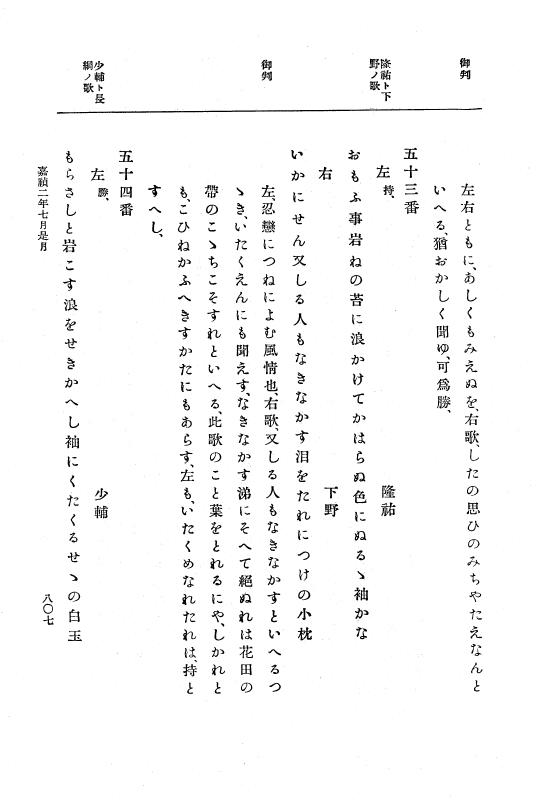 御判
左右ともに、あしくもみえぬを、右歌、したの思ひのみちやたえなんと
いへる、猶おかしく聞ゆ、可爲勝、
隆祐ト下
野ノ歌
五十三番
左 持、 隆祐
おもふ事岩ねの苔に浪かけてかはらぬ色にぬるゝ袖かな
右 下野
いかにせん又しる人もなきなかす泪をたれにつけの小枕
御判
左、忍戀につねによむ風情也、右歌、又しる人もなきなかすといへるつ
ゝき、いたくえんにも聞えす、なきなかす涕にそへて絕ぬれは花田の
帶のこゝちこそすれといへる、此歌のこと葉をとれるにや、しかれと
も、こひねかふへきすかたにもあらす、左も、いたくめなれたれは、持と
すへし、
少輔ト長
綱ノ歌
五十四番
左 勝、 少輔
もらさしと岩こす浪をせきかへし袖にくたくるせゝの白玉
嘉禎二年七月是月
八〇七